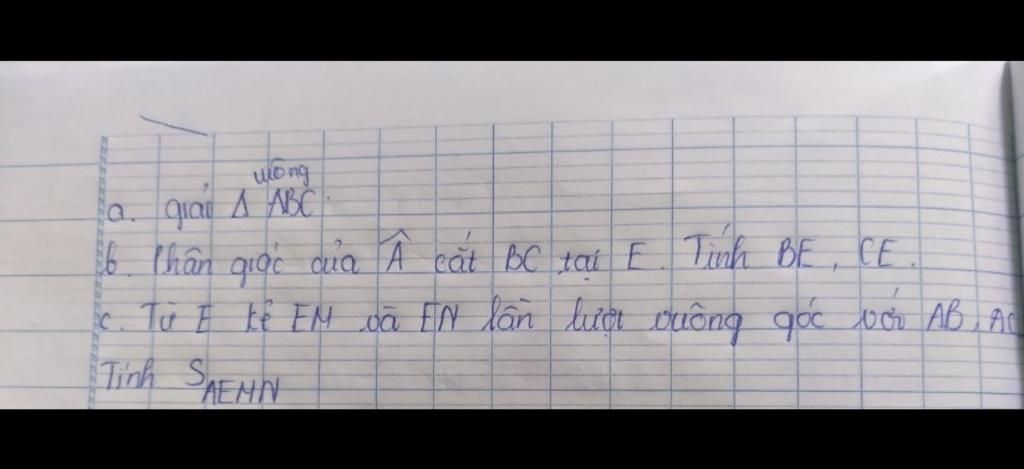 a. giải Δ vuông ABC.
b. Phân giác của Â cắt BC tại E. Tính BE, CE.
c. Từ E kẻ EM và EN lần lượt vuông góc với AB, AC
Tính S AEMN